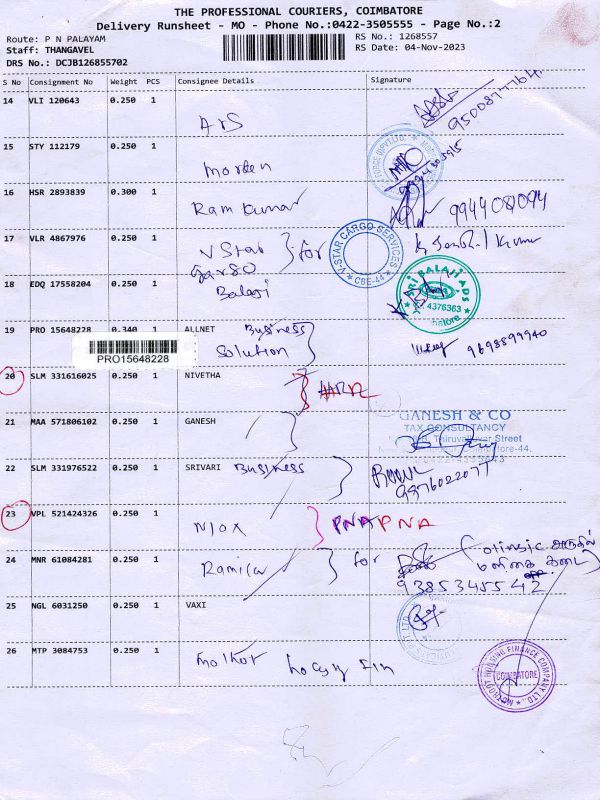 THE PROFESSIONAL COURIERS, COIMBATORE
Delivery Runsheet - MO - Phone No.:0422-3505555 - Page No.:2
Route: P N PALAYAM
Staff: THANGAVEL
DRS No.: DCJB126855702
RS No.: 1268557
RS Date: 04-Nov-2023
S No Consignment No Weight PCS Consignee Details Signature
14 VLI 120643 0.250 1
9500877764
15 STY 112179 0.250 1 Morden
16 HSR 2893839 0.300 1 Ram Kumar 9944081094
17 VLR 4867976 0.250 1 V Star for
V.STAR CARGO SERVICES
* CBE-44 *
18 EDQ 17558204 0.250 1 Balaji
SRI BALAJI ADS
4376363
19 PRO 15648228 0.340 1 ALLNET Business
Solution 9698899940
PRO15648228
20 SLM 331616025 0.250 1 NIVETHA
21 MAA 571806102 0.250 1 GANESH
GANESH & CO
TAX CONSULTANCY
22 SLM 331976522 0.250 1 SRIVARI Business
23 VPL 521424326 0.250 1 Niox PNA PNA
24 MNR 61084281 0.250 1 for
9385345542
25 NGL 6031250 0.250 1 VAXI
26 MTP 3084753 0.250 1 Fin
HOUSING FINANCE COMPANY LTD.
COIMBATORE